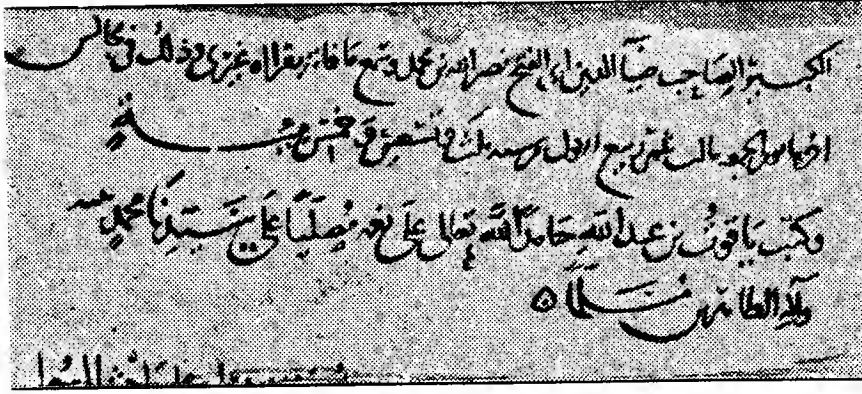 الكبير الصاحب ضياء الدين ابى الفتح نصر الله بن محمد وسمع ما فاته بقراءة غيرى وذلك فى مجالس
اخرها يوم الجمعة ثالث عشر ربيع الاول سنة ثلث وتسعين وخمس مئـــة
وكتب ياقوت بن عبد الله حامدا لله تعالى على نعمه مصليا على سيدنا محمد نبيه
وآله الطاهرين مسلما